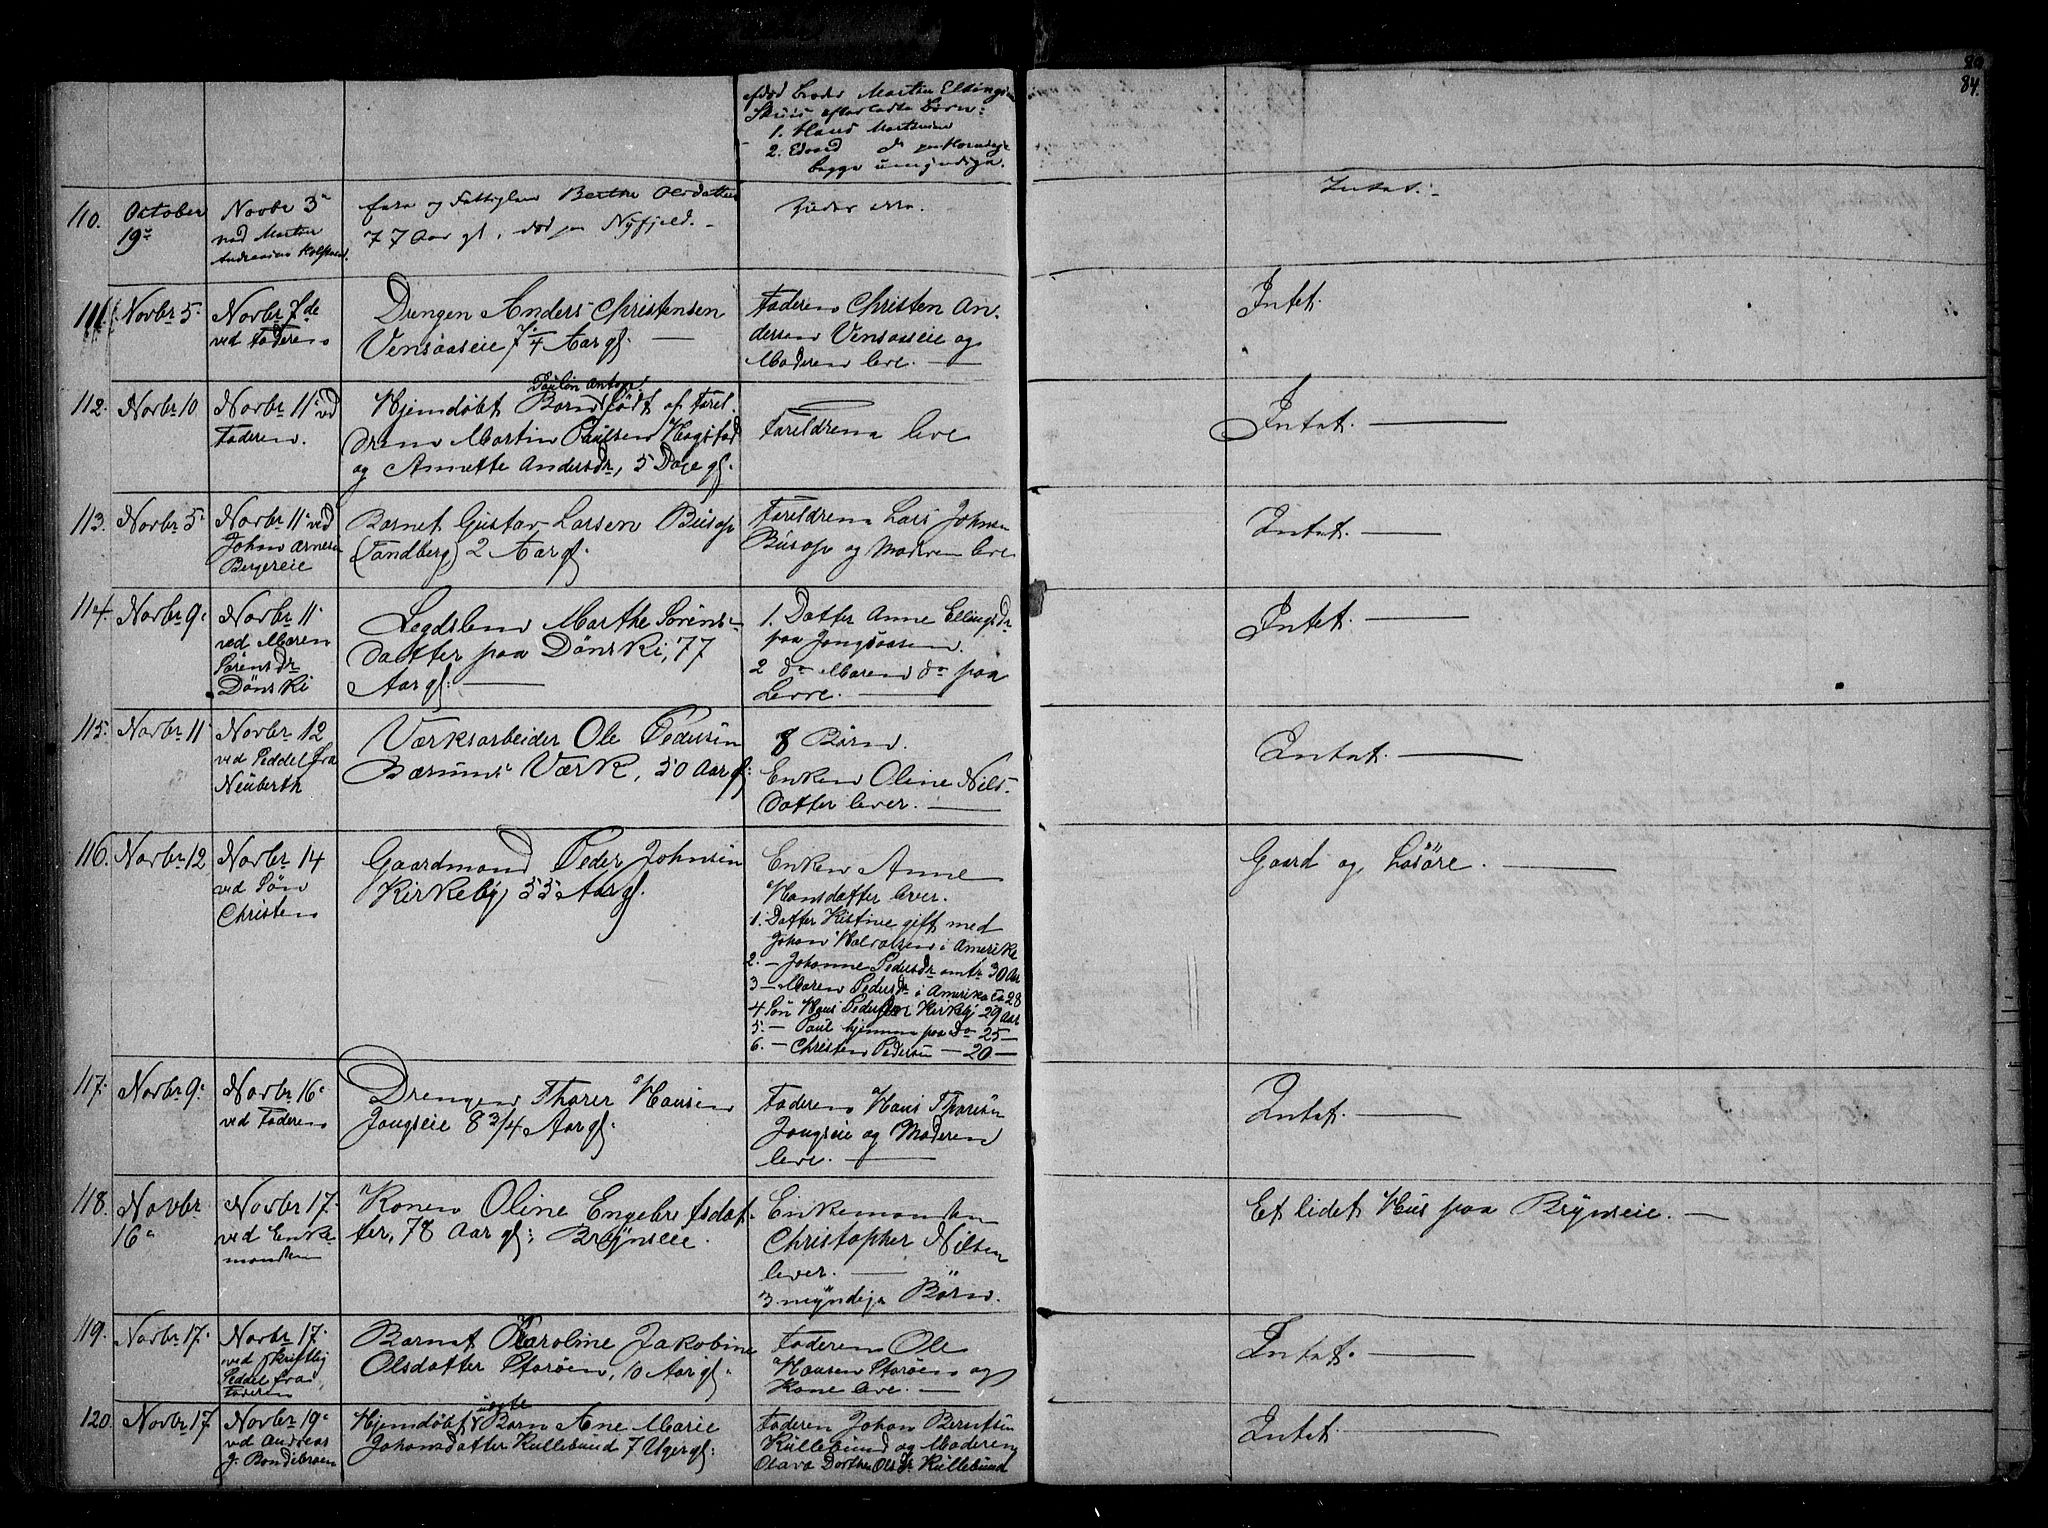 84.
afdød Broder Martin Ellings
efterladte Børn:
1. Hans Martinsen
2. Edvard do paa
begge umyndige.
110. October 19de
Novbr 3de ved Martin Andreasen
og Fattiglem Berthe Olsdatter
77 Aar gl. død paa Nyfjeld.
Intet.
111. Novbr 5.
Novbr 7de
ved Faderen
Drengen Anders Christensen
Vensaaseie 7 1/4 Aar gl.
Faderen Christen An-
dersen Vensaaseie og
Moderen leve.
Intet.
112. Novbr 10
Novbr 11 ved
Faderen.
Paulin Anton
Hjemdøbt Barn født af Forel-
drene Martin Paulsen Hagstad
og Annette Andersdr, 5 Dage gl.
Foreldrene leve
Intet.
113. Novbr 5
Novbr 11 ved
Johan Arnesen
Bergereie
Barnet Gustav Larsen Burop
(Tandberg) 2 Aar gl.
Foreldrene Lars Johnsen
Burop og Moderen leve
Intet.
114. Novbr 9
Novbr 11
ved Maren
Sørensdr
Dønski
Legdslem Marthe Sørens-
datter paa Dønski, 77
Aar gl.
1. Datter Anne Ellingsdr
paa Jongsaasen.
2 do Maren do paa
Intet.
115. Novbr 11
Novbr 12
ved Seddel fra
Neuberth
Værksarbeider Ole Pedersen
Bærums Værk, 50 Aar gl:
8 Børn.
Enken Oline Nils-
datter lever.
Intet.
116. Novbr 12
Novbr 14
ved Søn
Christen
Gaardmand Peder Johnsen
Kirkeby, 55 Aar gl.
Enken Anne
Hansdatter lever.
1. Datter Kistine gift med
Johan Halvorsen i Amerika
2. - Johanne Pedersdr omtr 30 Aar
3 - Maren Pedersdr i Amerika ca 28
4 Søn Hans Pedersen Kirkeby 29 Aar
5. - Paul hjemme paa do 25 -
6. - Christen Pedersen - 20 -
Gaard og Løsøre.
117. Novbr 9
Novbr 16
ved Faderen
Drengen Thorer Hansen
Jongseie 8 3/4 Aar gl.
Faderen Hans Thoresen
Jongseie og Moderen
leve.
Intet.
118. Novbr
16
Novbr 17
ved Enke-
manden
Konen Oline Engebretsdat-
ter, 78 Aar gl. Brynseie.
Enkemanden
Christopher Nilsen
lever.
3 myndige Børn.
Et lidet Hus paa Brynseie.
119. Novbr 17.
Novbr 17.
ved skriftlig
Seddel fra
Faderen
Barnet Karoline Jakobine
Olsdatter Storøen, 10 Aar gl.
Faderen Ole
Hansen Storøen og
Kone leve.
Intet.
120. Novbr 17
Novbr 19
ved Andreas
J. Bondebraaten
uægte
Hjemdøbt Barn Ane Marie
Johansdatter Kullebund 7 Uger gl.
Faderen Johan Berntsen
Kullebund og Moderen
Olava Dorthea Olsdr Kullebund
Intet.